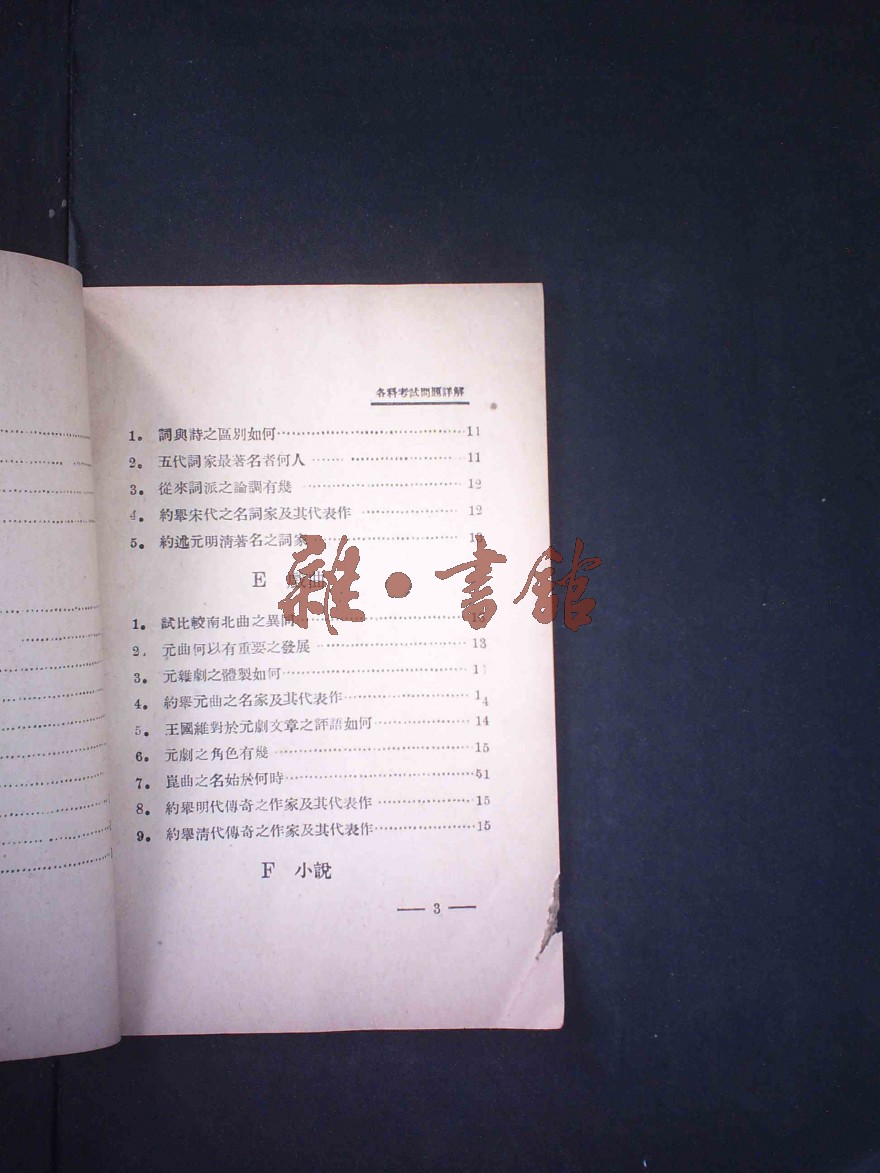 各科考試問題詳解
1. 詞與詩之區別如何 11
2. 五代詞家最著名者何人 11
3. 從來詞派之論調有幾 12
4. 約舉宋代之名詞家及其代表作 12
5. 約述元明清著名之詞家
E 戲曲
1. 試比較南北曲之異同
2. 元曲何以有重要之發展 13
3. 元雜劇之體製如何
4. 約舉元曲之名家及其代表作 14
5. 王國維對於元劇文章之評語如何 14
6. 元劇之角色有幾 15
7. 崑曲之名始於何時 51
8. 約舉明代傳奇之作家及其代表作 15
9. 約舉清代傳奇之作家及其代表作 15
F 小說
— 3 —
雜·書館